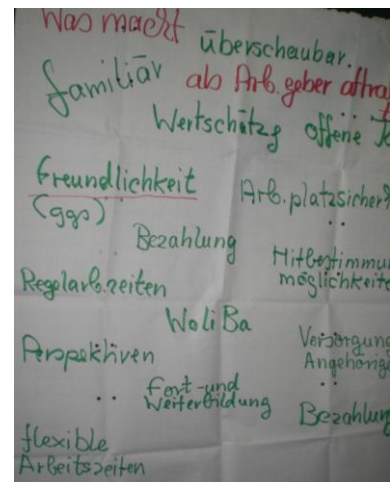 Was macht
überschaubar.
familiär
als Arb.geber attra
Wertschätzg offene
Freundlichkeit
(ggs)
Arb.platzsicher
Bezahlung
Mitbestimmu
möglichkeite
Regelarb.zeiten
WoliBa
Perspektiven
Versorgung
Angehörige
Fort-und
Weiterbildung
Bezahlung
flexible
Arbeitszeiten